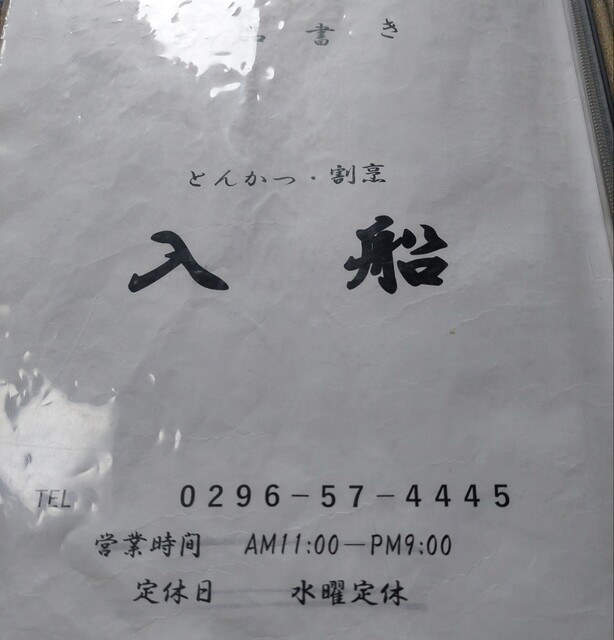 書き
とんかつ・割烹
入船
TEL 0296-57-4445
営業時間 AM11:00―PM9:00
定休日 水曜定休